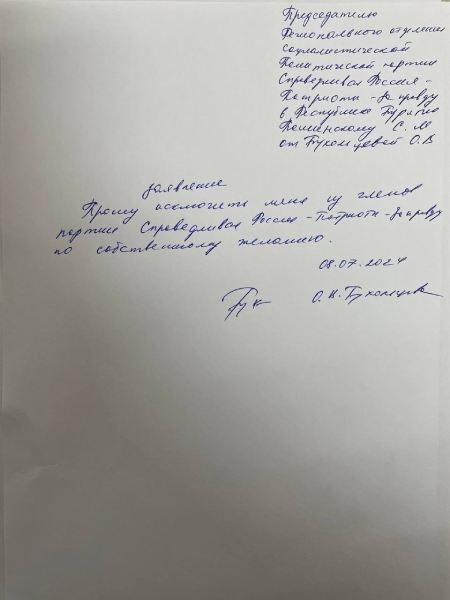 Председателю
Регионального отделения
социалистической
Политической партии
Справедливая Россия -
Патриоты - За правду
в Республике Бурятия
С. М
от Бухольцевой О.В
Заявление
Прошу исключить меня из членов
партии Справедливая Россия - Патриоты - За правду
по собственному желанию.
08.07.2024
О. В.